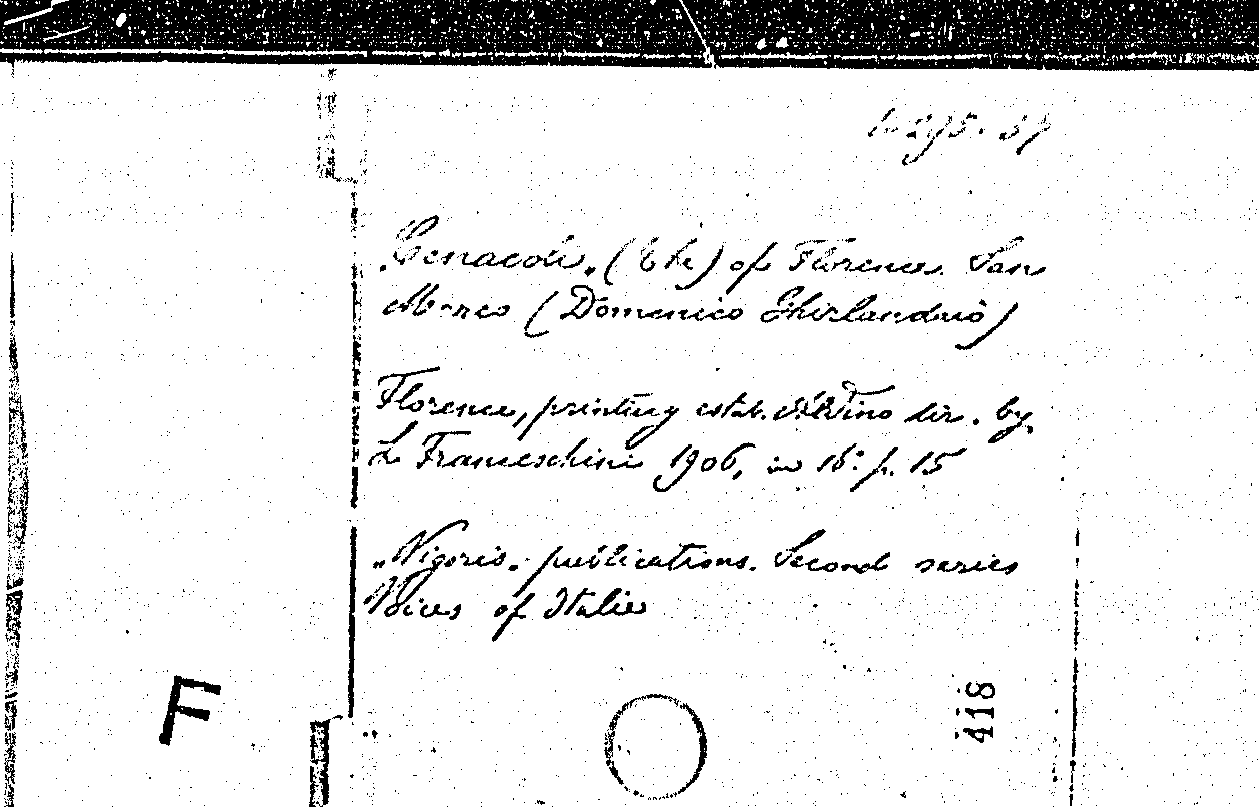 „Cenacoli„ (The) of Florence. San
Marco (Domenico Ghirlandaio)
Florence, printing estab. Aldino dir. by
L. Franceschini 1906, in 16° p. 15
„Vigoris„ publications. Second series
Voices of Italie
F
418